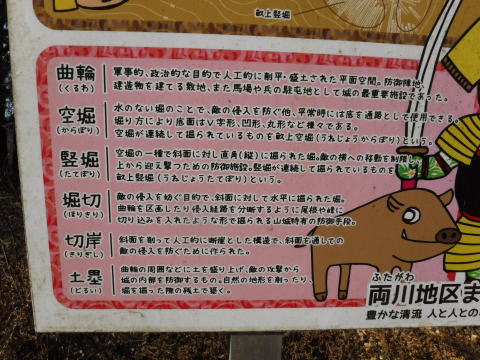 畝上竪堀
曲輪
(くるわ)
軍事的、政治的な目的で人工的に削平・盛土された平面空間。防御陣地、
建造物を建てる敷地、また馬場や兵の駐屯地として城の最重要施設であった。
空堀
(からぼり)
水のない堀のことで、敵の侵入を防ぐ他、平常時には底を通路として使用できる。
掘り方により底面はV字形、凹形、丸形など様々である。
空堀が連続して掘られているものを畝上空堀(うねじょうからぼり)という。
竪堀
(たてぼり)
空堀の一種で斜面に対し直角(縦)に掘られた堀。敵の横への移動を制限し、
上から迎え撃つための防御施設。竪堀が連続して掘られているものを
畝上竪堀(うねじょうたてぼり)という。
堀切
(ほりきり)
敵の侵入を妨ぐ目的で、斜面に対して水平に掘られた堀。
曲輪を区画したり侵入経路を分断するように尾根や峰に
切り込みを入れたような形で掘られる山城特有の防御手段。
切岸
(きりぎし)
斜面を削って人工的に断崖とした構造で、斜面を通しての
敵の侵入を防ぐために作られた。
土塁
(どるい)
曲輪の周囲などに土を盛り上げ、敵の攻撃から
城の内部を防御するもの。自然の地形を削ったり、
堀を掘った際の残土で築く。
ふたがわ
両川地区ま
豊かな清流 人と人との